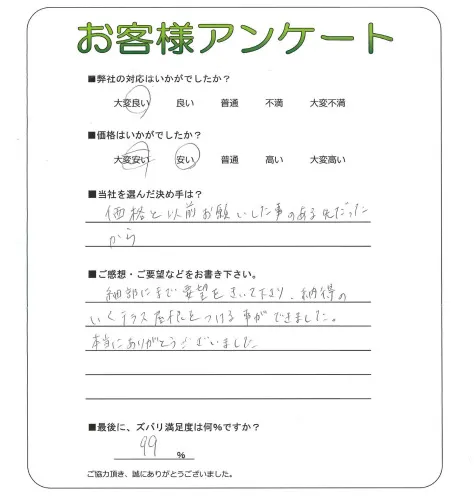 お客様アンケート
■弊社の対応はいかがでしたか？
大変良い 良い 普通 不満 大変不満
■価格はいかがでしたか？
大変安い 安い 普通 高い 大変高い
■当社を選んだ決め手は？
価格と以前お願いした事のある先だった
から
■ご感想・ご要望などをお書き下さい。
細部にまで要望をきいて下さり、納得の
いくテラス屋根をつける事ができました。
本当にありがとうございました
■最後に、ズバリ満足度は何％ですか？
99 ％
ご協力頂き、誠にありがとうございました。